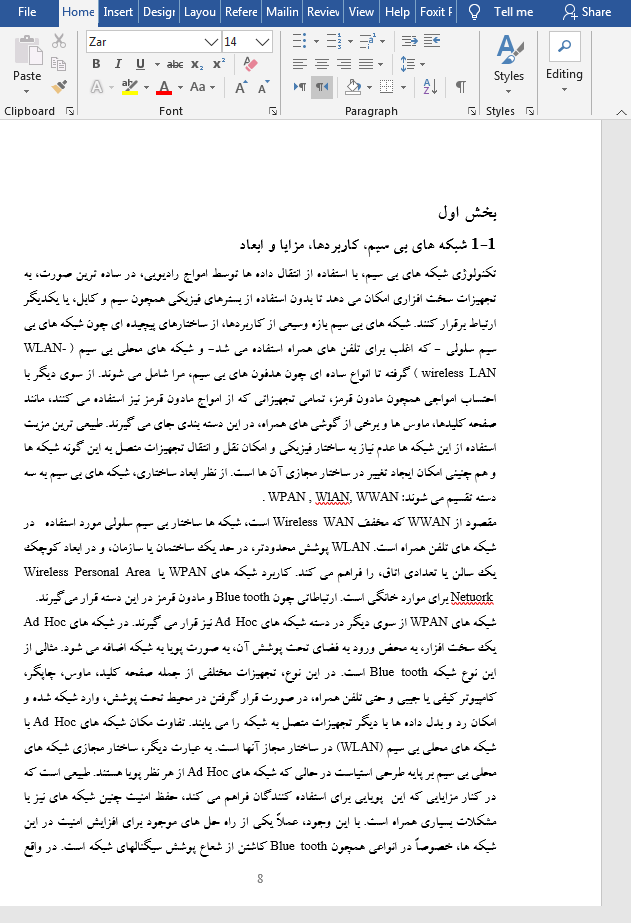 File Home Insert Desigr Layou Refere Mailin Reviev View Help Foxit F Tell me Share
Zar 14
Paste
B I U abc x₂ x²
A aby A Aa A A
Styles
Editing
Clipboard Font Paragraph Styles
بخش اول
1-1 شبکه های بی سیم، کاربردها، مزایا و ابعاد
تکنولوژی شبکه های بی سیم، با استفاده از انتقال داده ها توسط امواج رادیویی، در ساده ترین صورت، به
تجهیزات سخت افزاری امکان می دهد تا بدون استفاده از بسترهای فیزیکی همچون سیم و کابل، با یکدیگر
ارتباط برقرار کنند. شبکه های بی سیم بازه وسیعی از کاربردها، از ساختارهای پیچیده ای چون شبکه های بی
سیم سلولی - که اغلب برای تلفن های همراه استفاده می شد- و شبکه های محلی بی سیم ( WLAN-
wireless LAN ) گرفته تا انواع ساده ای چون هدفون های بی سیم، مرا شامل می شوند. از سوی دیگر با
احتساب امواجی همچون مادون قرمز، تمامی تجهیزاتی که از امواج مادون قرمز نیز استفاده می کنند، مانند
صفحه کلیدها، ماوس ها و برخی از گوشی های همراه، در این دسته بندی جای می گیرند. طبیعی ترین مزیت
استفاده از این شبکه ها عدم نیاز به ساختار فیزیکی و امکان نقل و انتقال تجهیزات متصل به این گونه شبکه ها
و هم چنینی امکان ایجاد تغییر در ساختار مجازی آن ها است. از نظر ابعاد ساختاری، شبکه های بی سیم به سه
دسته تقسیم می شوند: WPAN , WlAN, WWAN .
مقصود از WWAN که مخفف Wireless WAN است، شبکه ها ساختار بی سیم سلولی مورد استفاده در
شبکه های تلفن همراه است. WLAN پوشش محدودتر، در حد یک ساختمان یا سازمان، و در ابعاد کوچک
یک سالن یا تعدادی اتاق، را فراهم می کند. کاربرد شبکه های WPAN یا Wireless Personal Area
Netuork برای موارد خانگی است. ارتباطاتی چون Blue tooth و مادون قرمز در این دسته قرار می‌گیرند.
شبکه های WPAN از سوی دیگر در دسته شبکه های Ad Hoc نیز قرار می گیرند. در شبکه های Ad Hoc
یک سخت افزار، به محض ورود به فضای تحت پوشش آن، به صورت پویا به شبکه اضافه می شود. مثالی از
این نوع شبکه Blue tooth است. در این نوع، تجهیزات مختلفی از جمله صفحه کلید، ماوس، چاپگر،
کامپیوتر کیفی یا جیبی و حتی تلفن همراه، در صورت قرار گرفتن در محیط تحت پوشش، وارد شبکه شده و
امکان رد و بدل داده ها با دیگر تجهیزات متصل به شبکه را می یابند. تفاوت مکان شبکه های Ad Hoc با
شبکه های محلی بی سیم (WLAN) در ساختار مجاز آنها است. به عبارت دیگر، ساختار مجازی شبکه های
محلی بی سیم بر پایه طرحی استیاست در حالی که شبکه های Ad Hoc از هر نظر پویا هستند. طبیعی است که
در کنار مزایایی که این پویایی برای استفاده کنندگان فراهم می کند، حفظ امنیت چنین شبکه های نیز با
مشکلات بسیاری همراه است. با این وجود، عملاً یکی از راه حل های موجود برای افزایش امنیت در این
شبکه ها، خصوصاً در انواعی همچون Blue tooth کاشتن از شعاع پوشش سیگنالهای شبکه است. در واقع
8